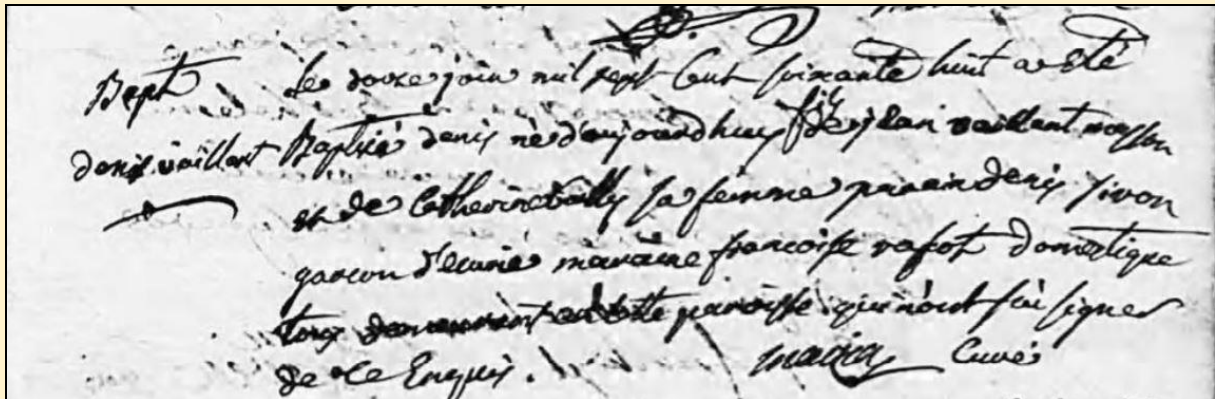 Bapt
denis vaillant
le douze juin mil sept Cent soixante huit a Eté
Baptisé denis né d'aujourdhuy fils de jean vaillant masson
et de Catherine bailly sa femme parain denis sivon
garcon d'ecurie maraine francoise rafot domestique
tous demeurant en cette paroisse qui n'ont sçu signer
de ce Enquis.
Curé